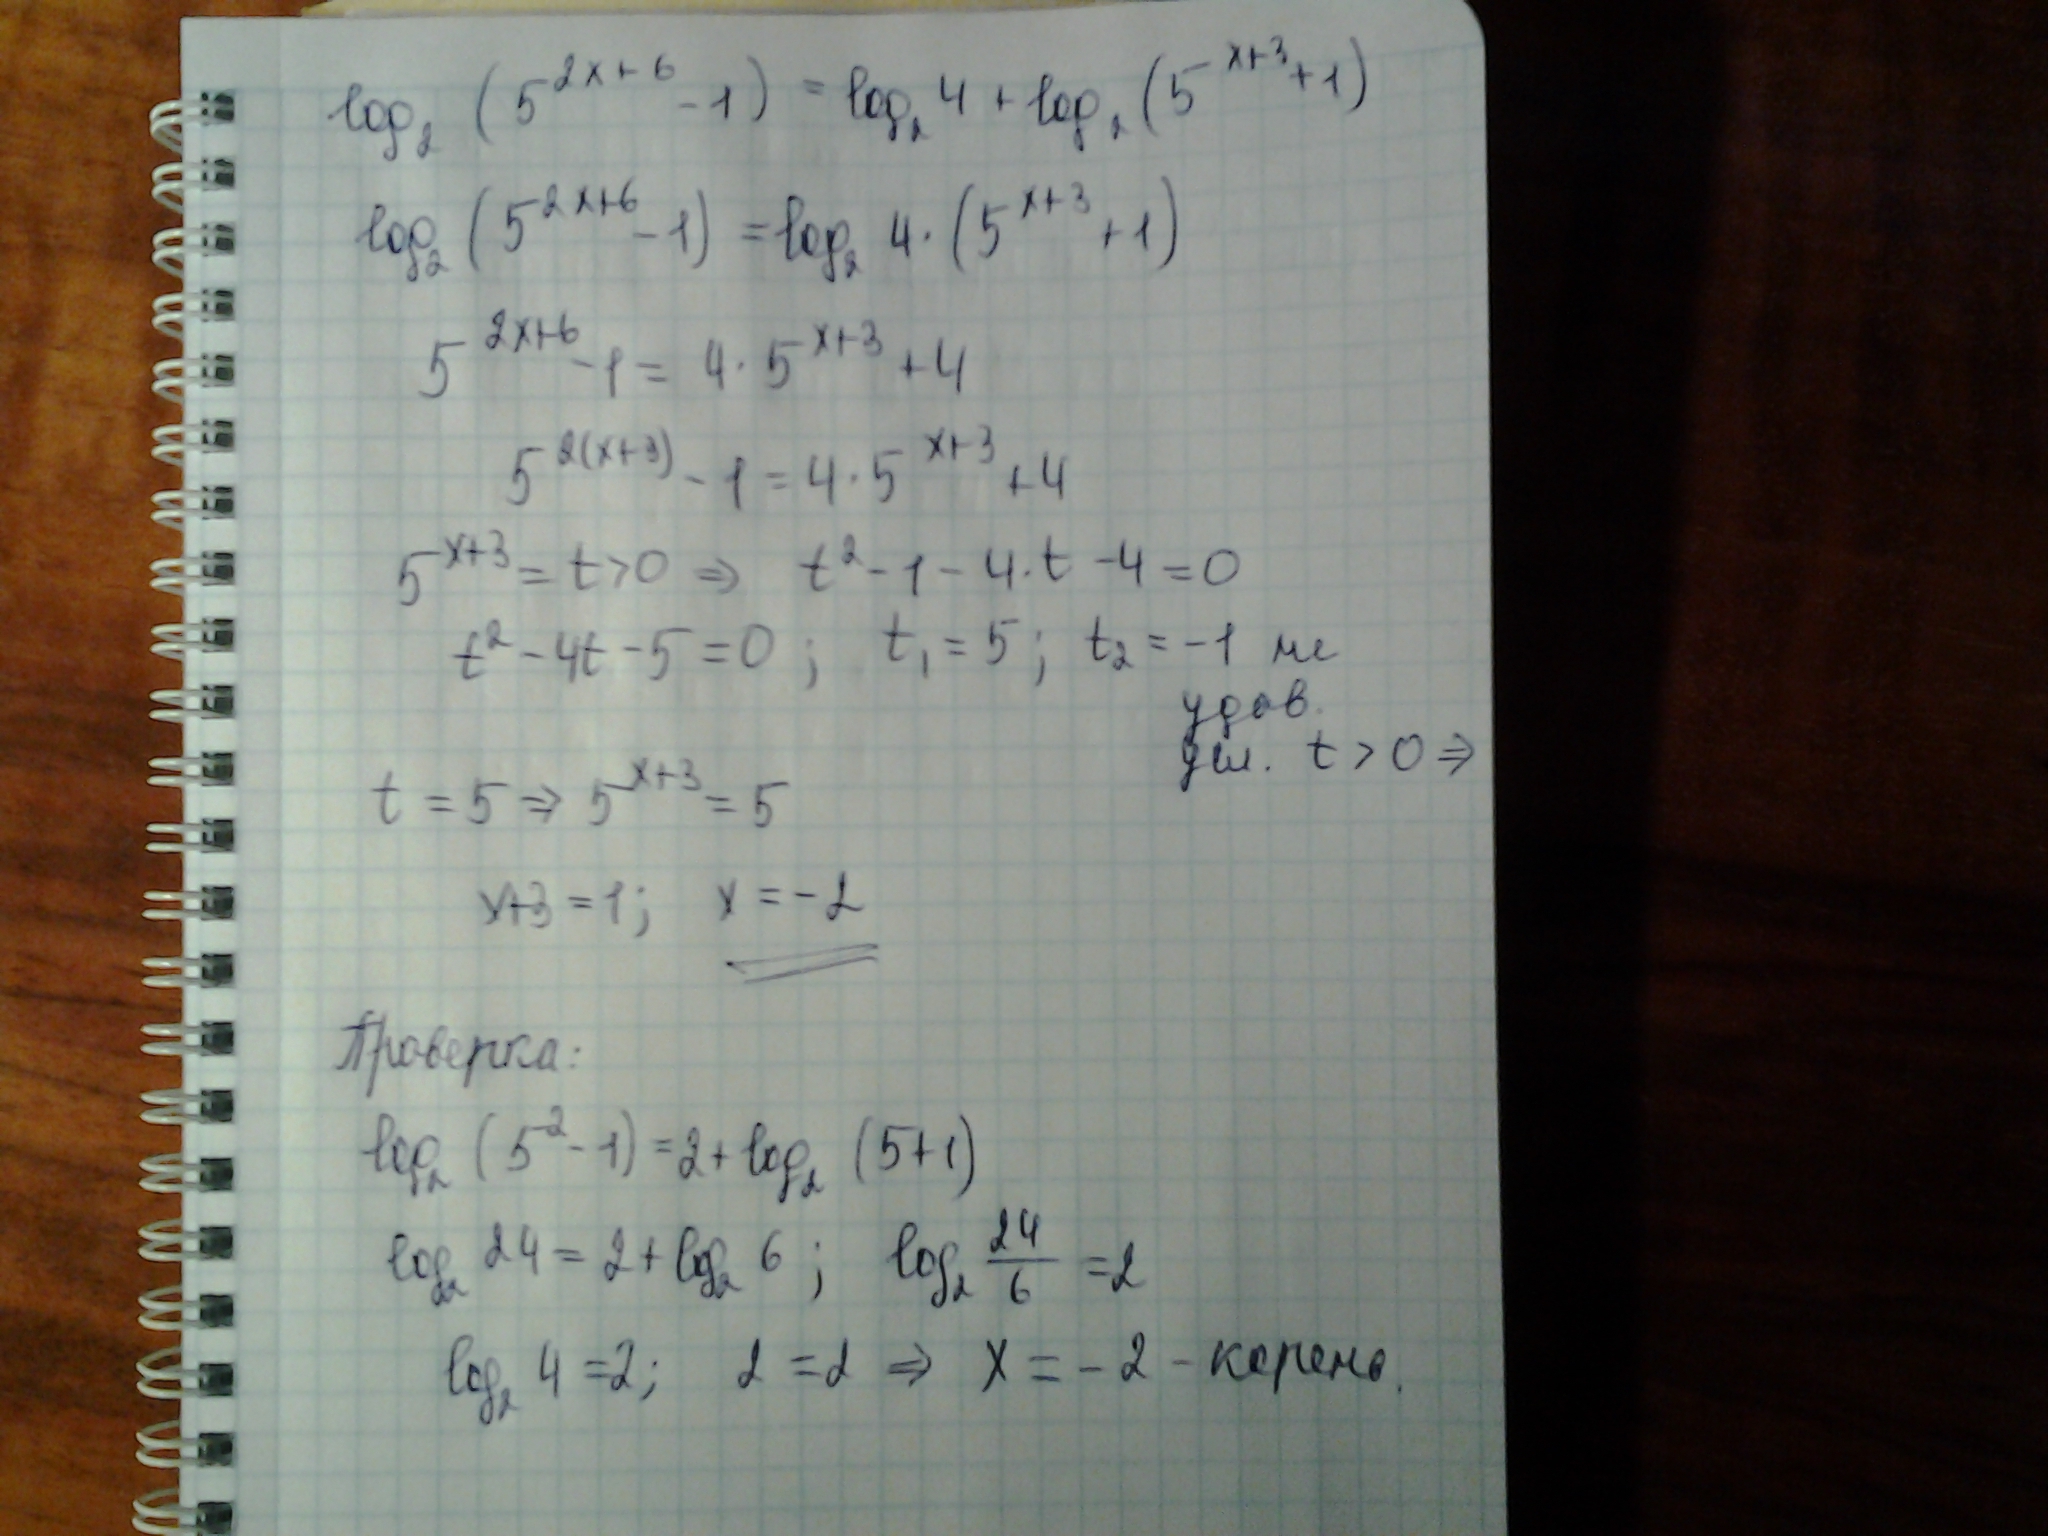 log₂ (5^{2x+6} - 1) = log₂ 4 + log₂ (5^{x+3} + 1)
log₂ (5^{2x+6} - 1) = log₂ 4 · (5^{x+3} + 1)
5^{2x+6} - 1 = 4 · 5^{x+3} + 4
5^{2(x+3)} - 1 = 4 · 5^{x+3} + 4
5^{x+3} = t > 0 ⇒ t² - 1 - 4 · t - 4 = 0
t² - 4t - 5 = 0 ; t₁ = 5 ; t₂ = -1 не
удов.
усл. t > 0 ⇒
t = 5 ⇒ 5^{x+3} = 5
x+3 = 1; x = -2
Проверка:
log₂ (5² - 1) = 2 + log₂ (5+1)
log₂ 24 = 2 + log₂ 6 ; log₂ \frac{24}{6} = 2
log₂ 4 = 2; 2 = 2 ⇒ x = -2 - корень.